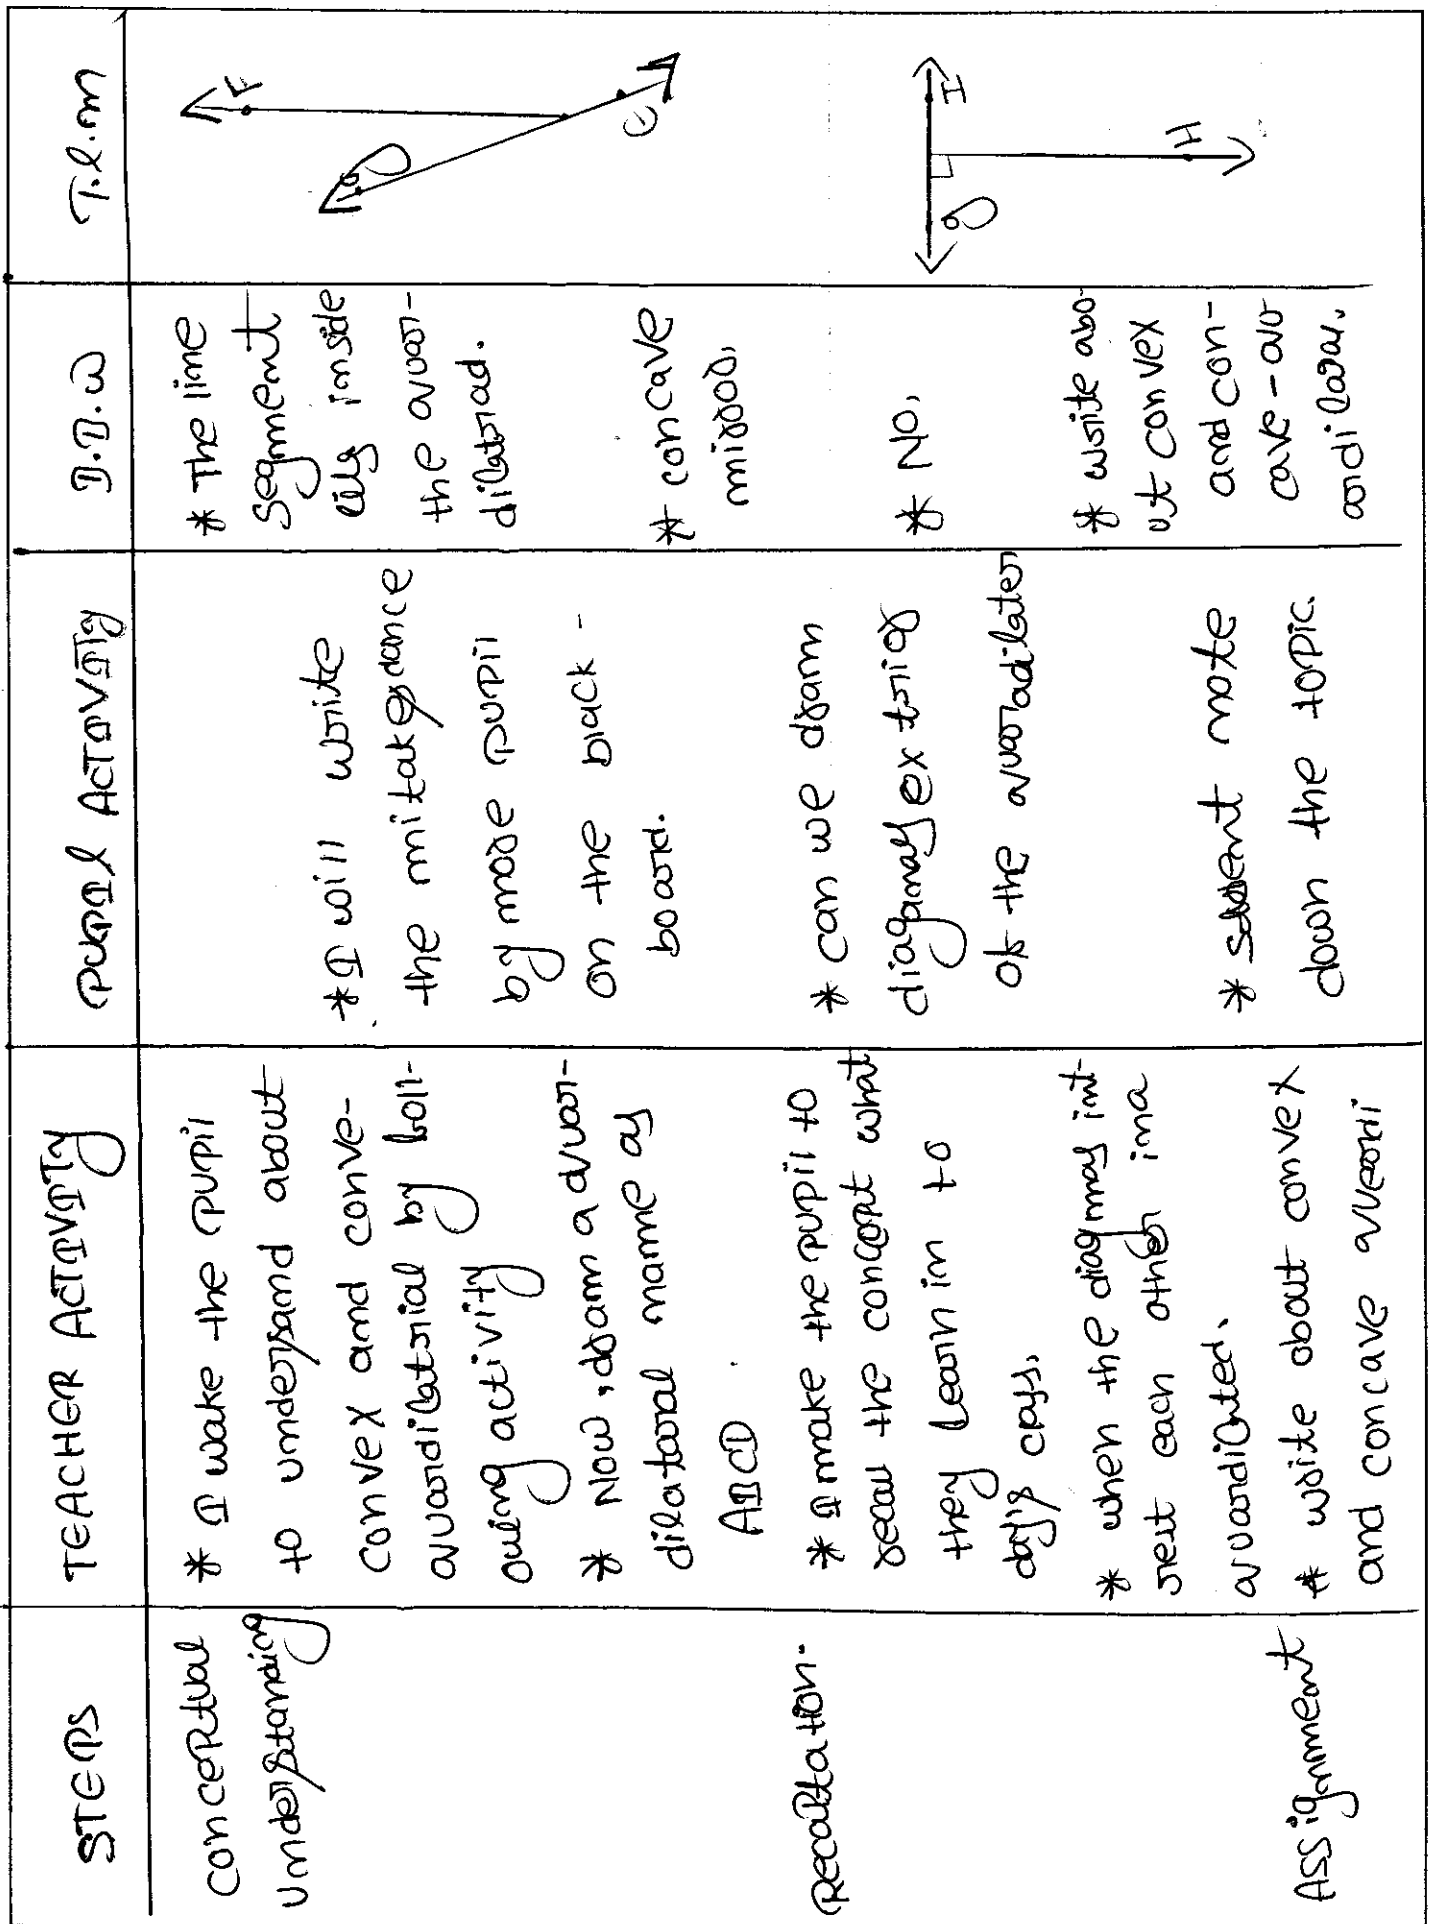 STEPS
TEACHER ACTIVITY
PUPIL ACTIVITY
B.B.W
T.L.M
Conceptual
Understanding
* I wake the pupil
to undersand about
convex and conve-
quardilatrial by foll-
owing activity
* Now, dram a quar-
dilataral name as
ABCD
* I will write
the mitakes dance
by mode pupil
on the black -
board.
* The line
segment
lies inside
the quar-
dilatriad.
* concave
mirror.
F
G
Recaptation.
* I make the pupil to
recall the concept what
they learn in to
day's class.
* when the diagrnas int-
rest each other in a
* can we dram
diaganas ex trior
of the quardilater
* No.
I
H
Assignment
* write about convex
and concave
* student note
down the topic.
* write abo
ut convex
and con-
cave - qu